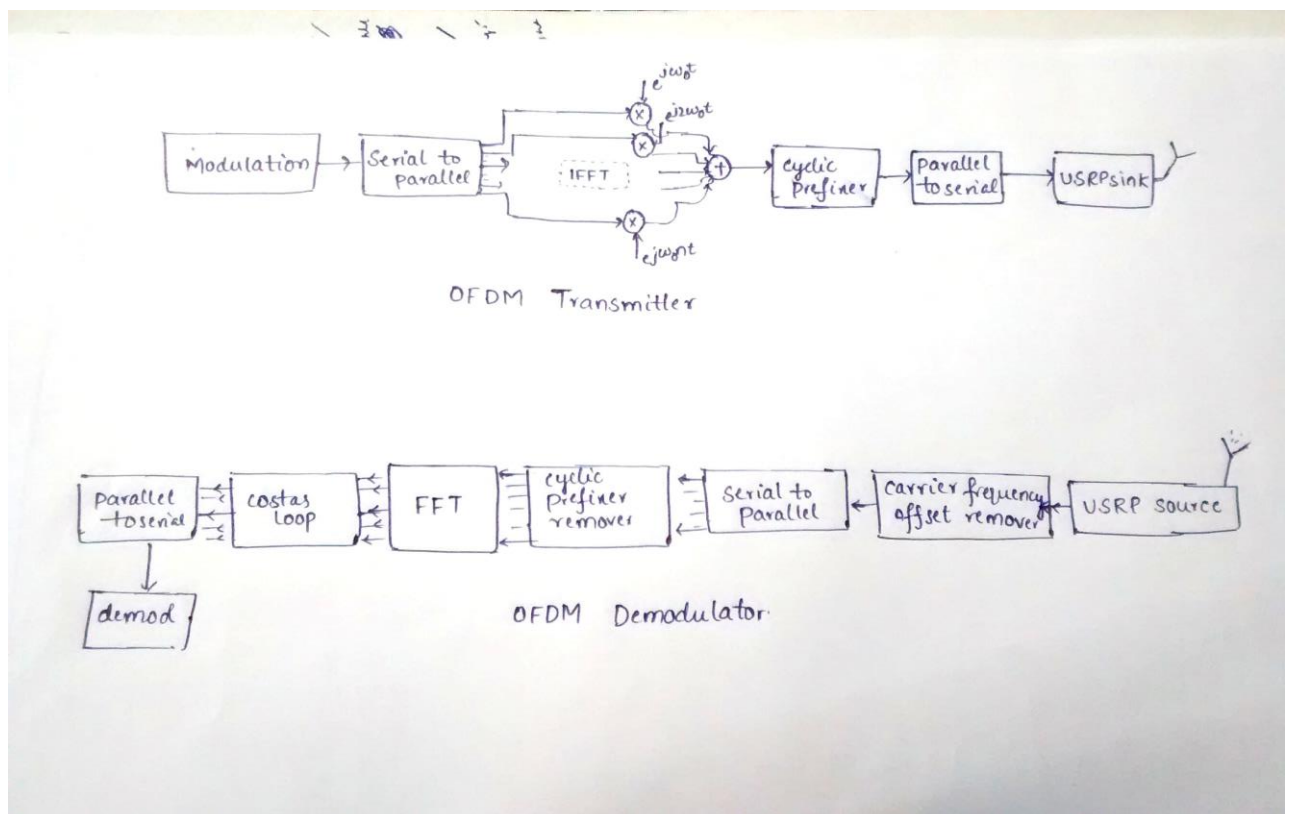 e^jω₀t
e^j2ω₀t
Modulation
Serial to
parallel
IFFT
cyclic
Prefixer
parallel
to serial
USRP sink
e^jω₀nt
OFDM Transmitter
parallel
to serial
costas
loop
FFT
cyclic
prefixer
remover
Serial to
Parallel
carrier frequency
offset remover
USRP source
demod
OFDM Demodulator.